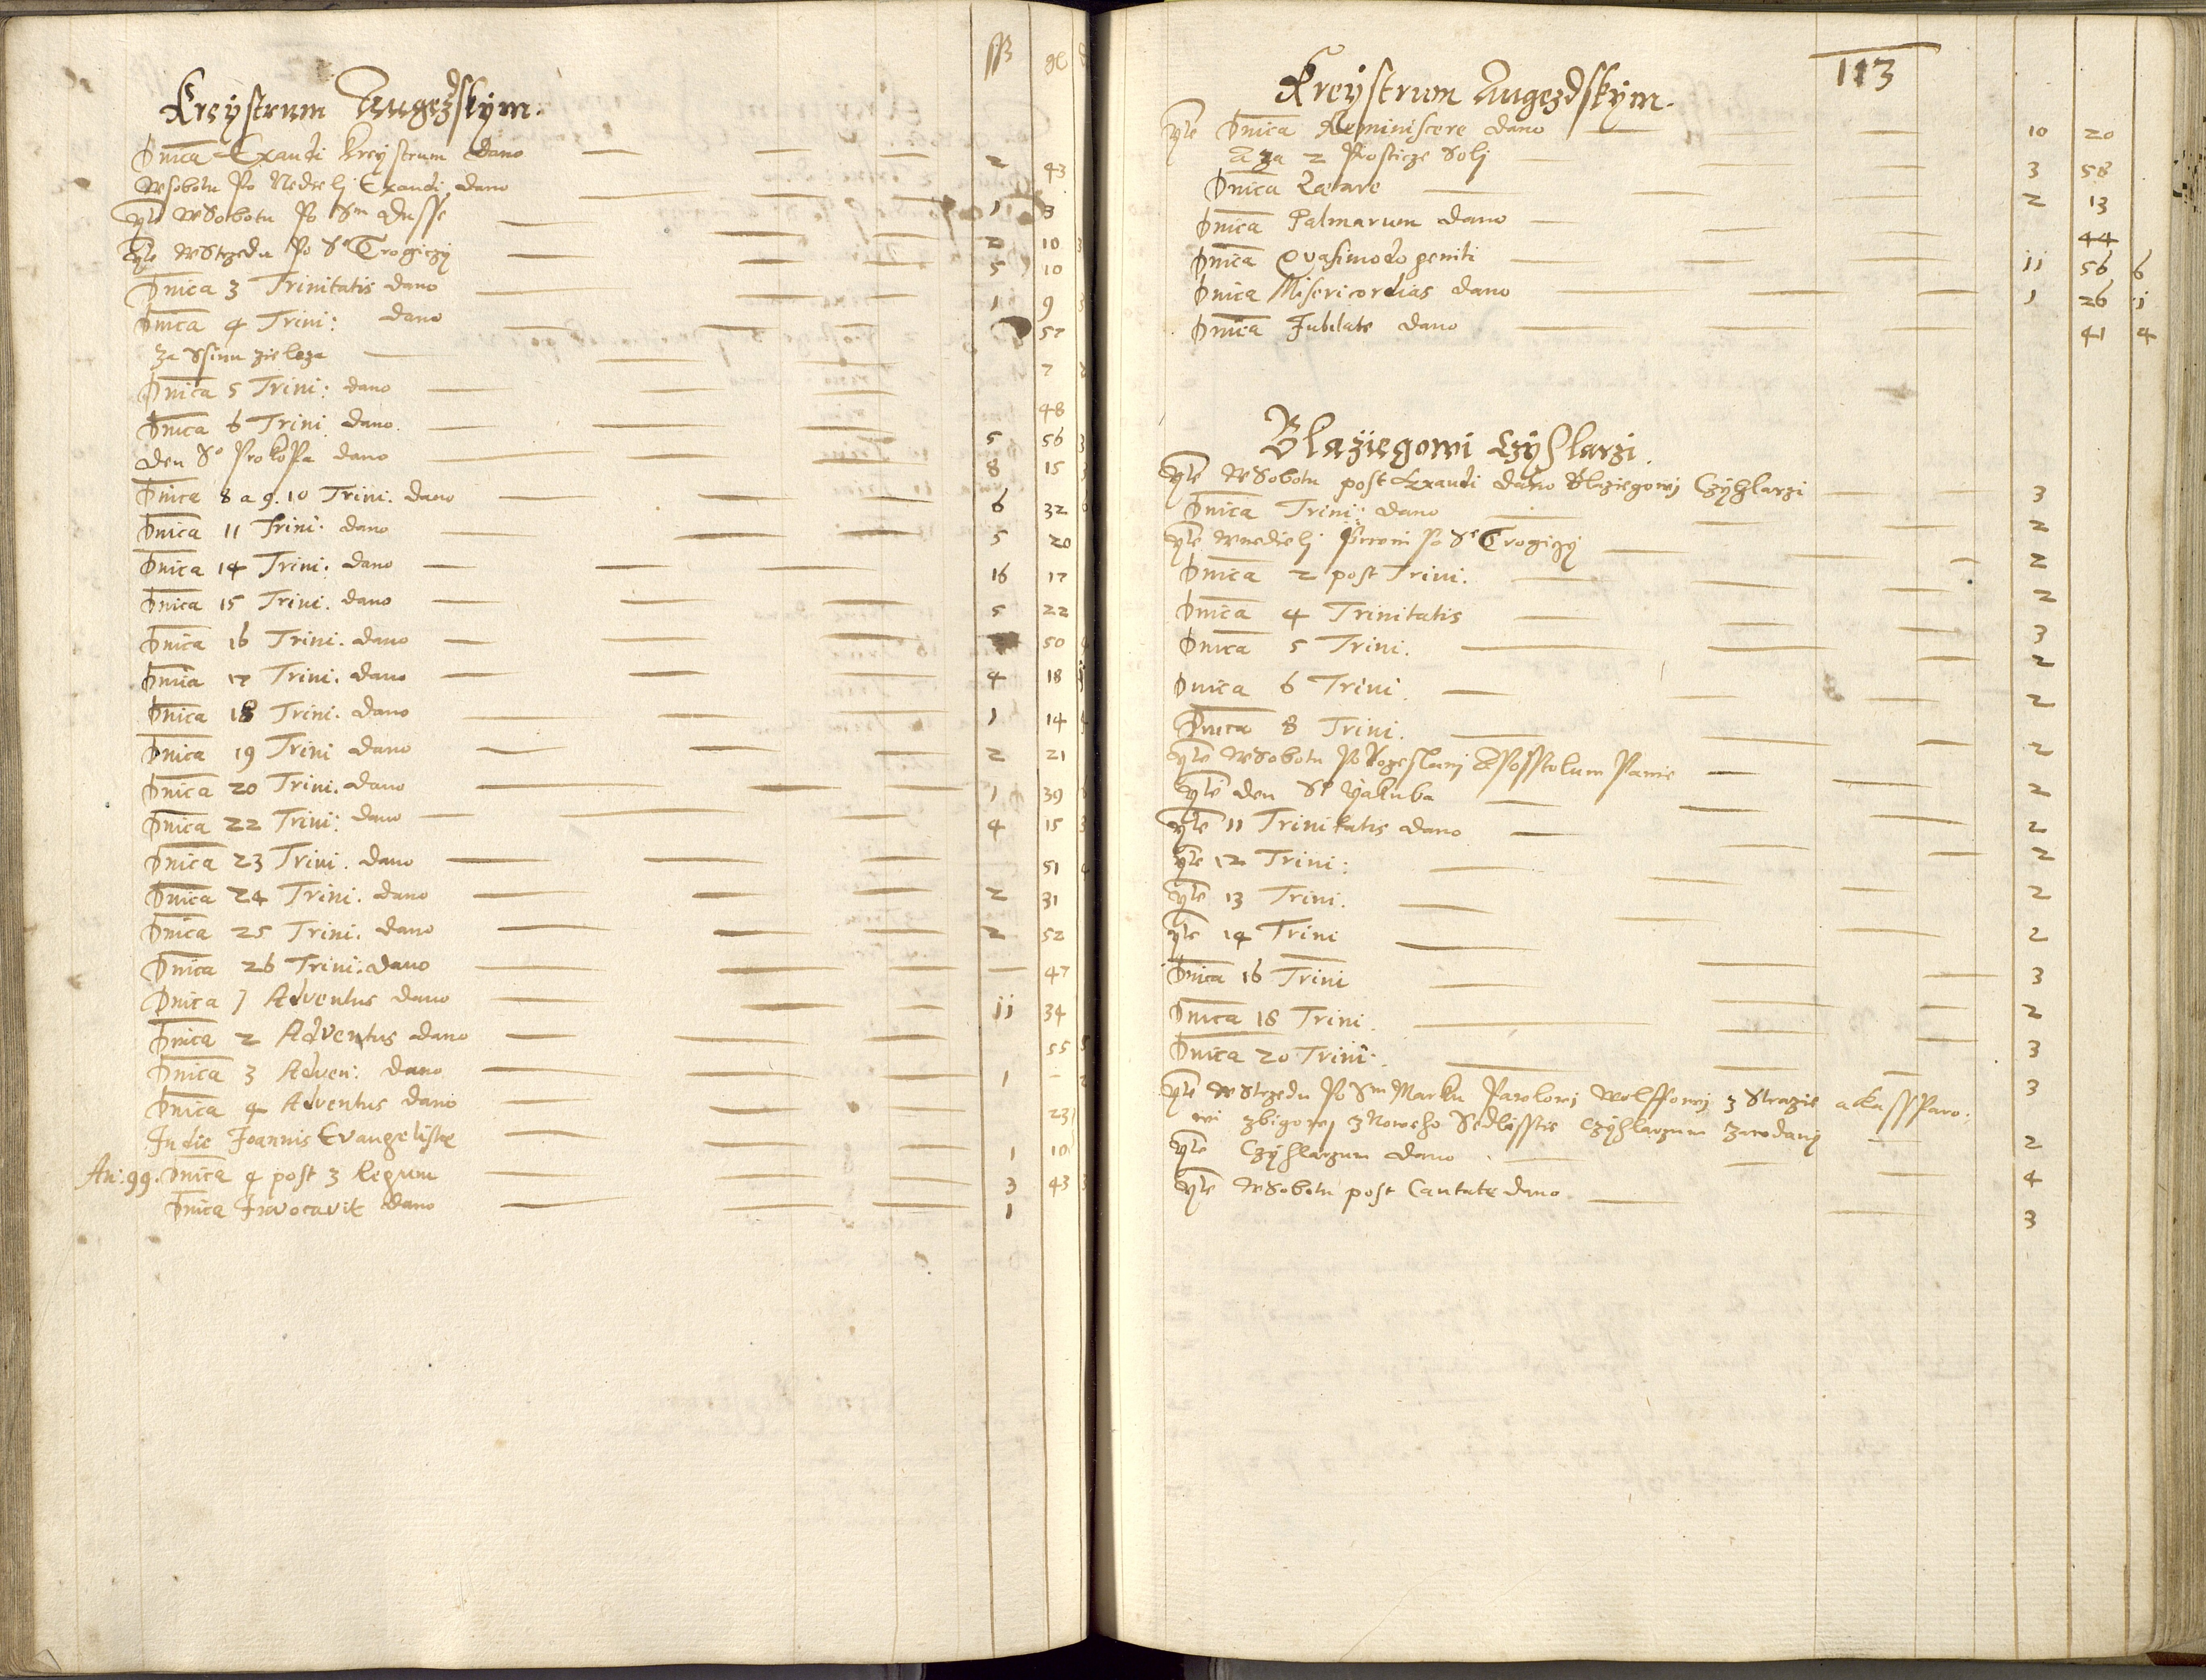 ß gl d
Kreystrum Augezdskym.
Dnica Exaudi kreystrum dano 2 43
W sobotu Po Nedielj Exaudi dano 1 8
Yte W Sobotu Po Sm Dusse 2 10 3
Yte W Strzedu Po Se Trogiczy 5 10
Dnica 3 Trinitatis dano 1 9 3
Dnica 4 Trini: dano 57
za 7
Dnica 5 Trini: dano 48
Dnica 6 Trini dano. 5 56 3
Den So Prokopa dano 8 15 3
Dnica 8 a 9. 10 Trini. dano 6 32 6
Dnica 11 Trini: dano 5 20
Dnica 14 Trini: dano 16 17
Dnica 15 Trini. dano 5 22
Dnica 16 Trini. dano 50 4
Dnica 17 Trini. dano 4 18 5
Dnica 18 Trini. dano 1 14 4
Dnica 19 Trini dano 2 21
Dnica 20 Trini. dano 1 39
Dnica 22 Trini: dano 4 15 3
Dnica 23 Trini. dano 51 4
Dnica 24 Trini. dano 2 31
Dnica 25 Trini. dano 2 52
Dnica 26 Trini: dano — 47
Dnica 1 Adventus dano 11 34
Dnica 2 Adventus dano 55 5
Dnica 3 Adven: dano 1 — 2
Dnica 4 Adventus dano 23
In die Joannis Evangelistae 1 10
An: 99. Dnica 4 post 3 Regum 3 43 3
Dnica Invocavit dano 1
113
Kreystrum Augezdskym.
Yte Dnica Reminiscere dano 10 20
A za 2 Prosticze Solj 3 58
Dnica Laetare 2 13
Dnica Palmarum dano 44
Dnica Quasimodo geniti 11 56 6
Dnica Misericordias dano 1 26 1
Dnica Jubilate dano 41 4
Blaziegowi Czyhlarzi.
Yte W Sobotu post Exaudi dano Blaziegowj Czyhlarzi 3
Dnica Trini: dano 2
Yte W nedielj Prwni Po Se Trogiczy 2
Dnica 2 post Trini. 2
Dnica 4 Trinitatis 3
Dnica 5 Trini. 2
Dnica 6 Trini. 2
Dnica 8 Trini. 2
Yte W Sobotu Po Rozeslanj Aposstolum Panie 2
Yte den So Yakuba 2
Yte 11 Trinitatis dano 2
Yte 12 Trini: 2
Yte 13 Trini. 2
Yte 14 Trini 3
Dnica 16 Trini 2
Dnica 18 Trini. 3
Dnica 20 Trini: 3
Yte W Strzedu Po Sm Marku Pawlowj Wolffowj z Straze a Kassparo:
wi z Noweho Sedlisstie Czyhlarzum Zawdany 2
Yte Czyhlarzum dano 4
Yte W Sobotu post Cantate dano 3